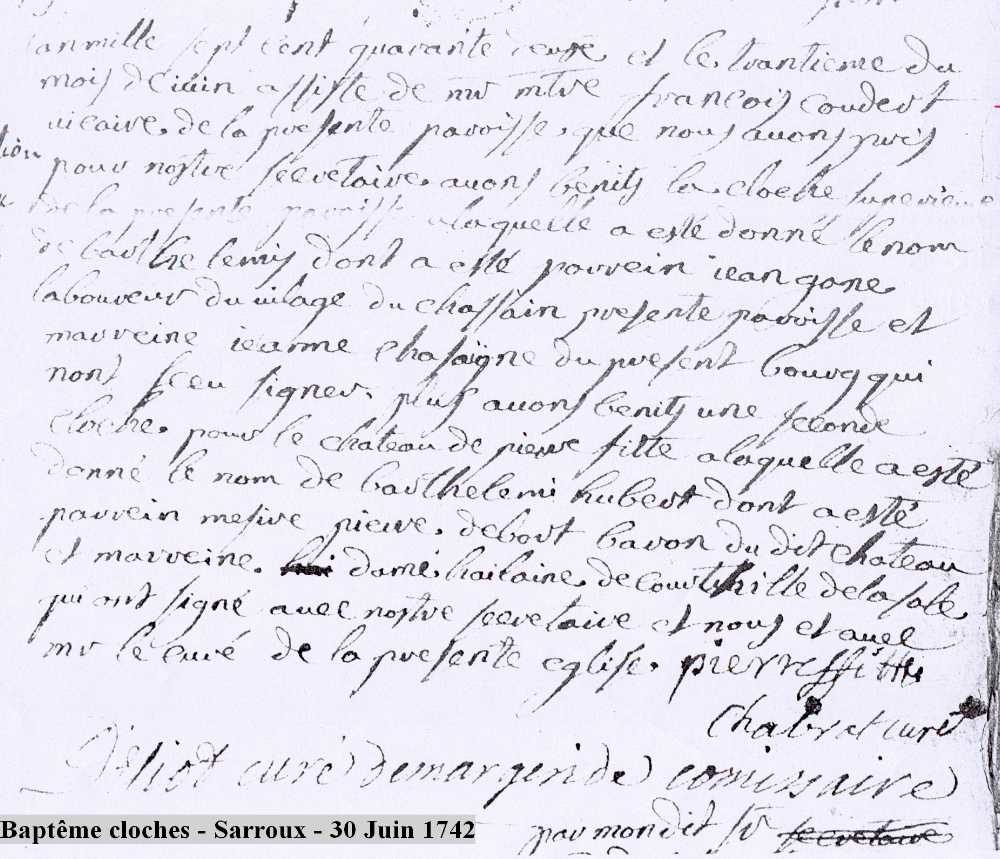 lanmille sept cent quarante deuse et le trantieme du
mois de iuin assiste de mr mtre francois coudert
uicaire de la presente paroisse que nous auons pris
pour nostre secretaire auons benits la cloche superieure
de la presente paroisse a laquelle a esté donné le nom
de barthelemis dont a esté parrein iean gane
laboureur du uilage du chassain presente parroisse et
marreine ieanne chasaigne du present bourg qui
nont sceu signer plus auons benits une seconde
cloche pour le chateau de pierre fitte a laquelle a esté
donné le nom de barthelemi hubert dont a esté
parrein mesire pierre debort baron du dit chateau
et marreine dame hailaine de courthille de la sale
qui ont signé auec nostre secretaire et nous et auec
mr le curé de la presente eglise. pierreffitte
Chabrat curé
curé de margeride comissaire
par mon dit sr secretaire
Baptême cloches - Sarroux - 30 Juin 1742